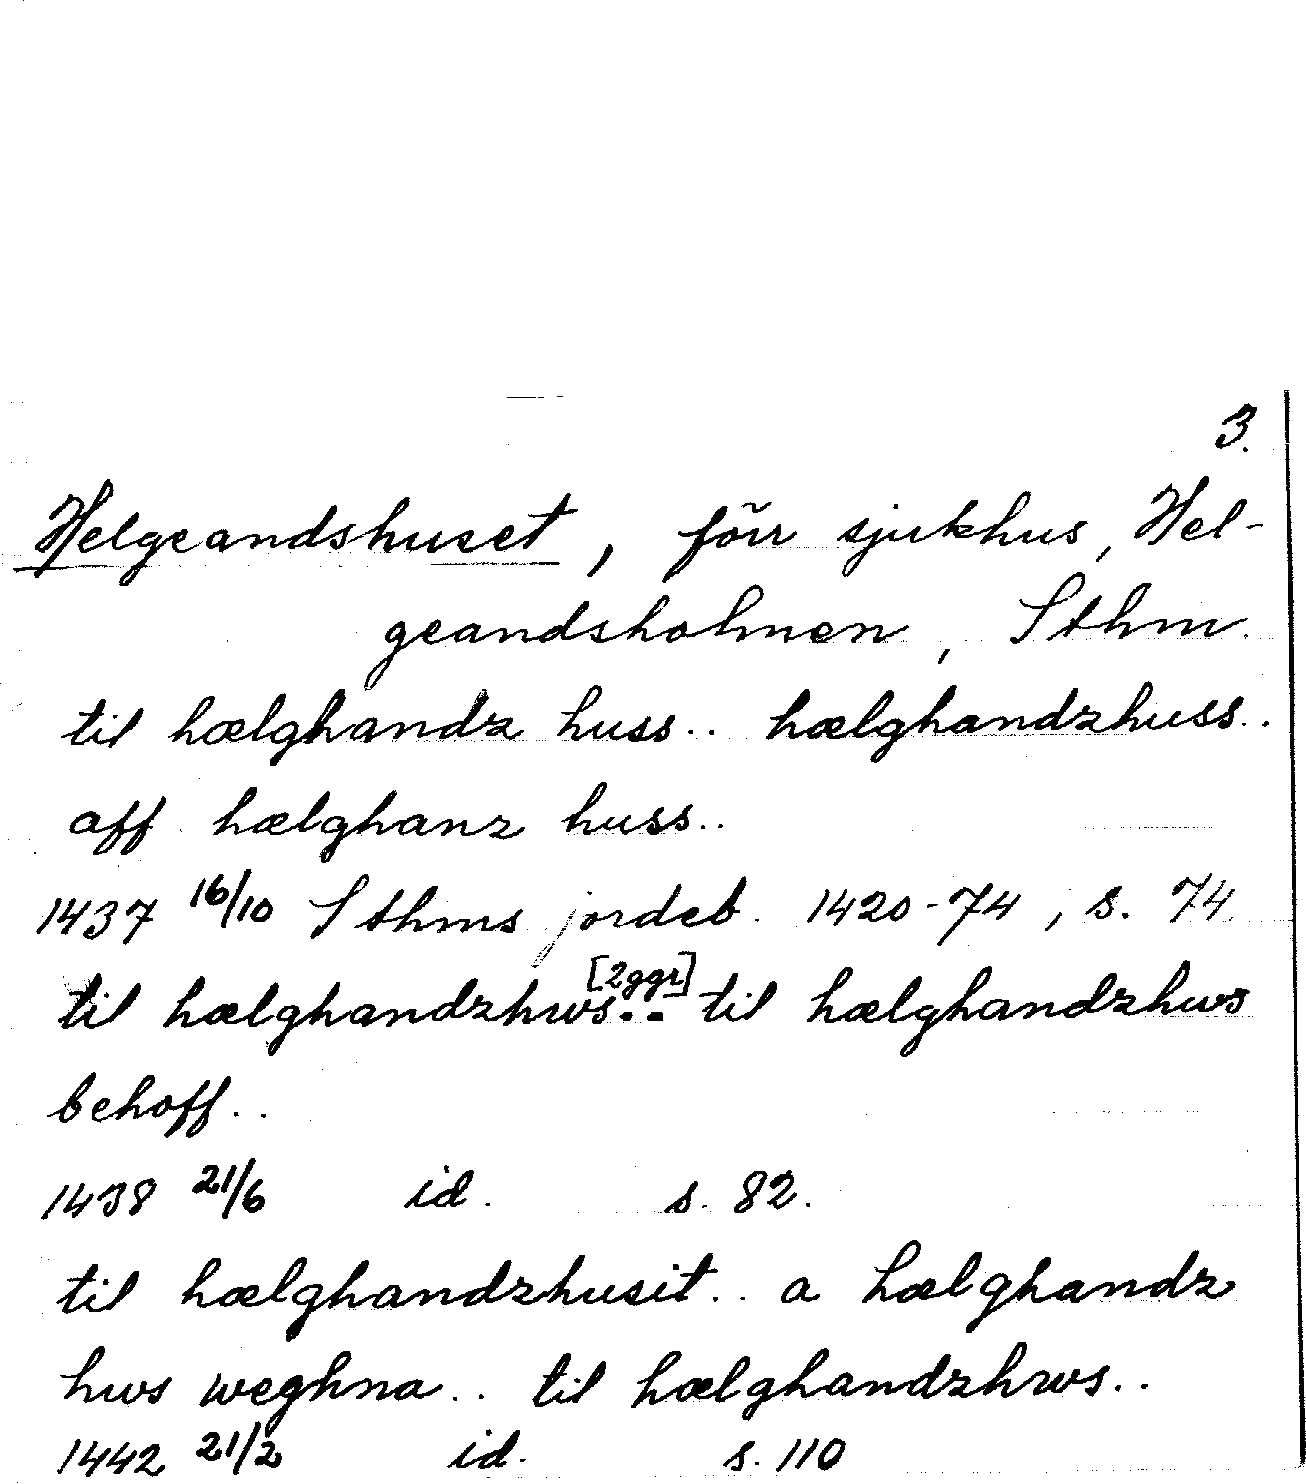 3.
Helgeandshuset, förr sjukhus, Hel-
geandsholmen, Sthm.
til hælghandz huss.. hælghandzhuss..
aff hælghanz huss..
1437 16/10 Sthms jordeb. 1420-74, s. 74
[2ggr]
til hælghandzhws.. til hælghandzhws
behoff..
1438 21/6 id. s. 82.
til hælghandzhusit.. a hælghandz
hws weghna.. til hælghandzhws..
1442 21/2 id. s. 110